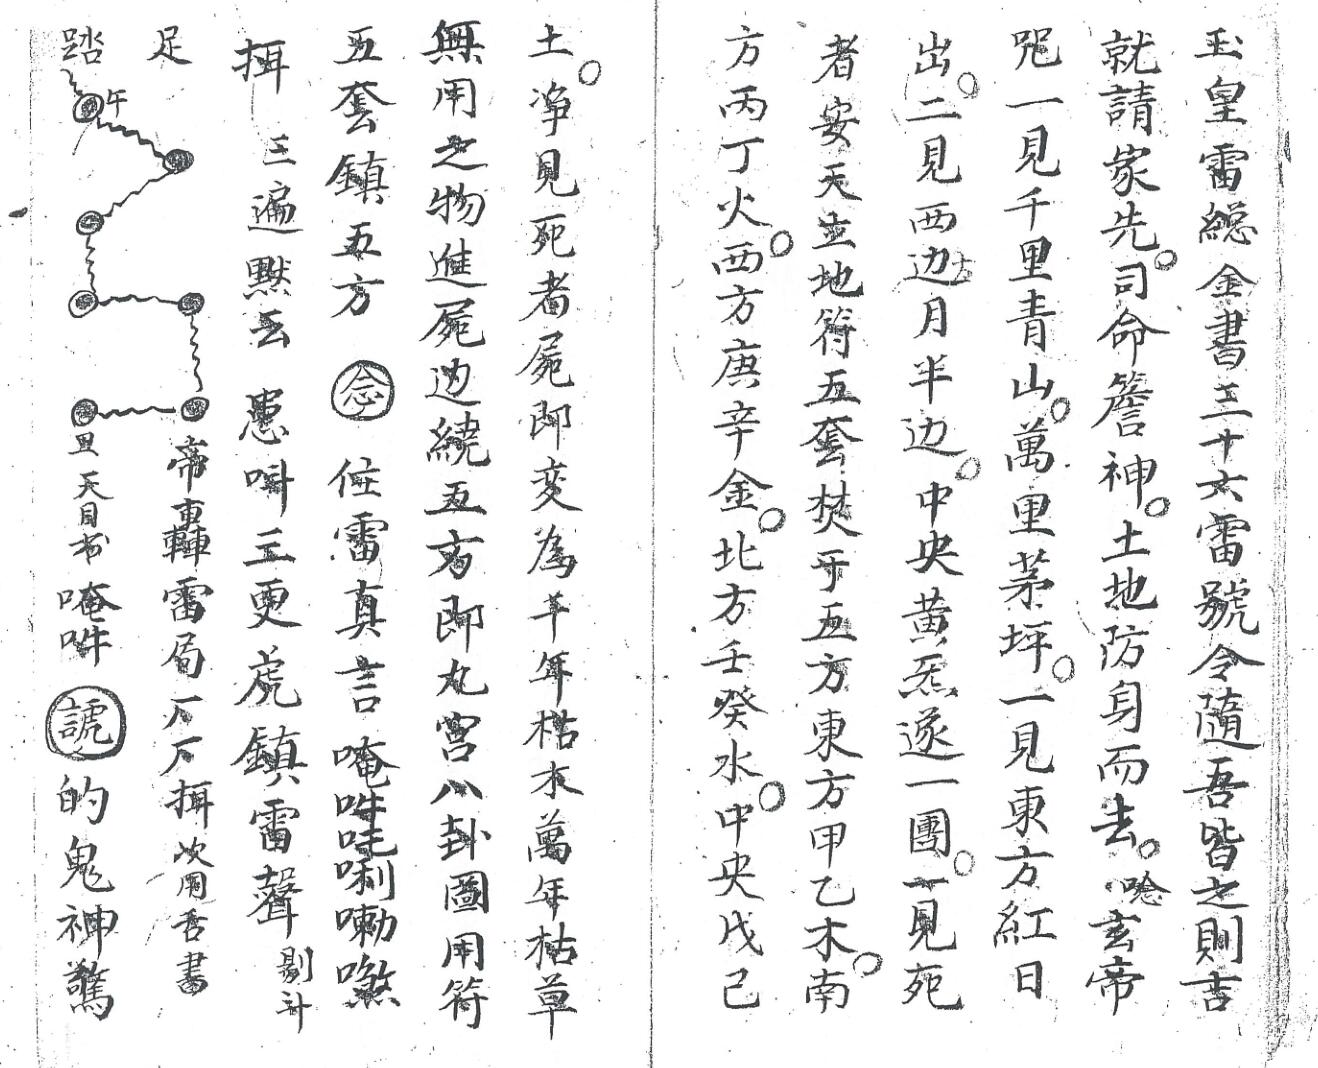 玉皇雷総金書三十六雷號令隨吾皆之則吉
就請家先。司命簷神。土地防身而去。唸玄帝
咒一見千里青山。萬里茅坪。一見東方紅日
出。二見西边月半边。中央黄炁遂一團。一見死
者安天立地符五套焚于五方東方甲乙木。南
方丙丁火。西方庚辛金。北方壬癸水。中央戊己
土。净見死者屍即变為千年枯木萬年枯草
無用之物進屍边繞五方即丸宫八卦圖用符
五套鎮五方 念 住雷真言 唵吽吒唎嘞噉
揖 三遍默云 患呌三更虎鎮雷聲 剔斗
足 帝轟雷局 揖次用舌書
踏 午 丑 天目书 唵吽 諕的鬼神驚